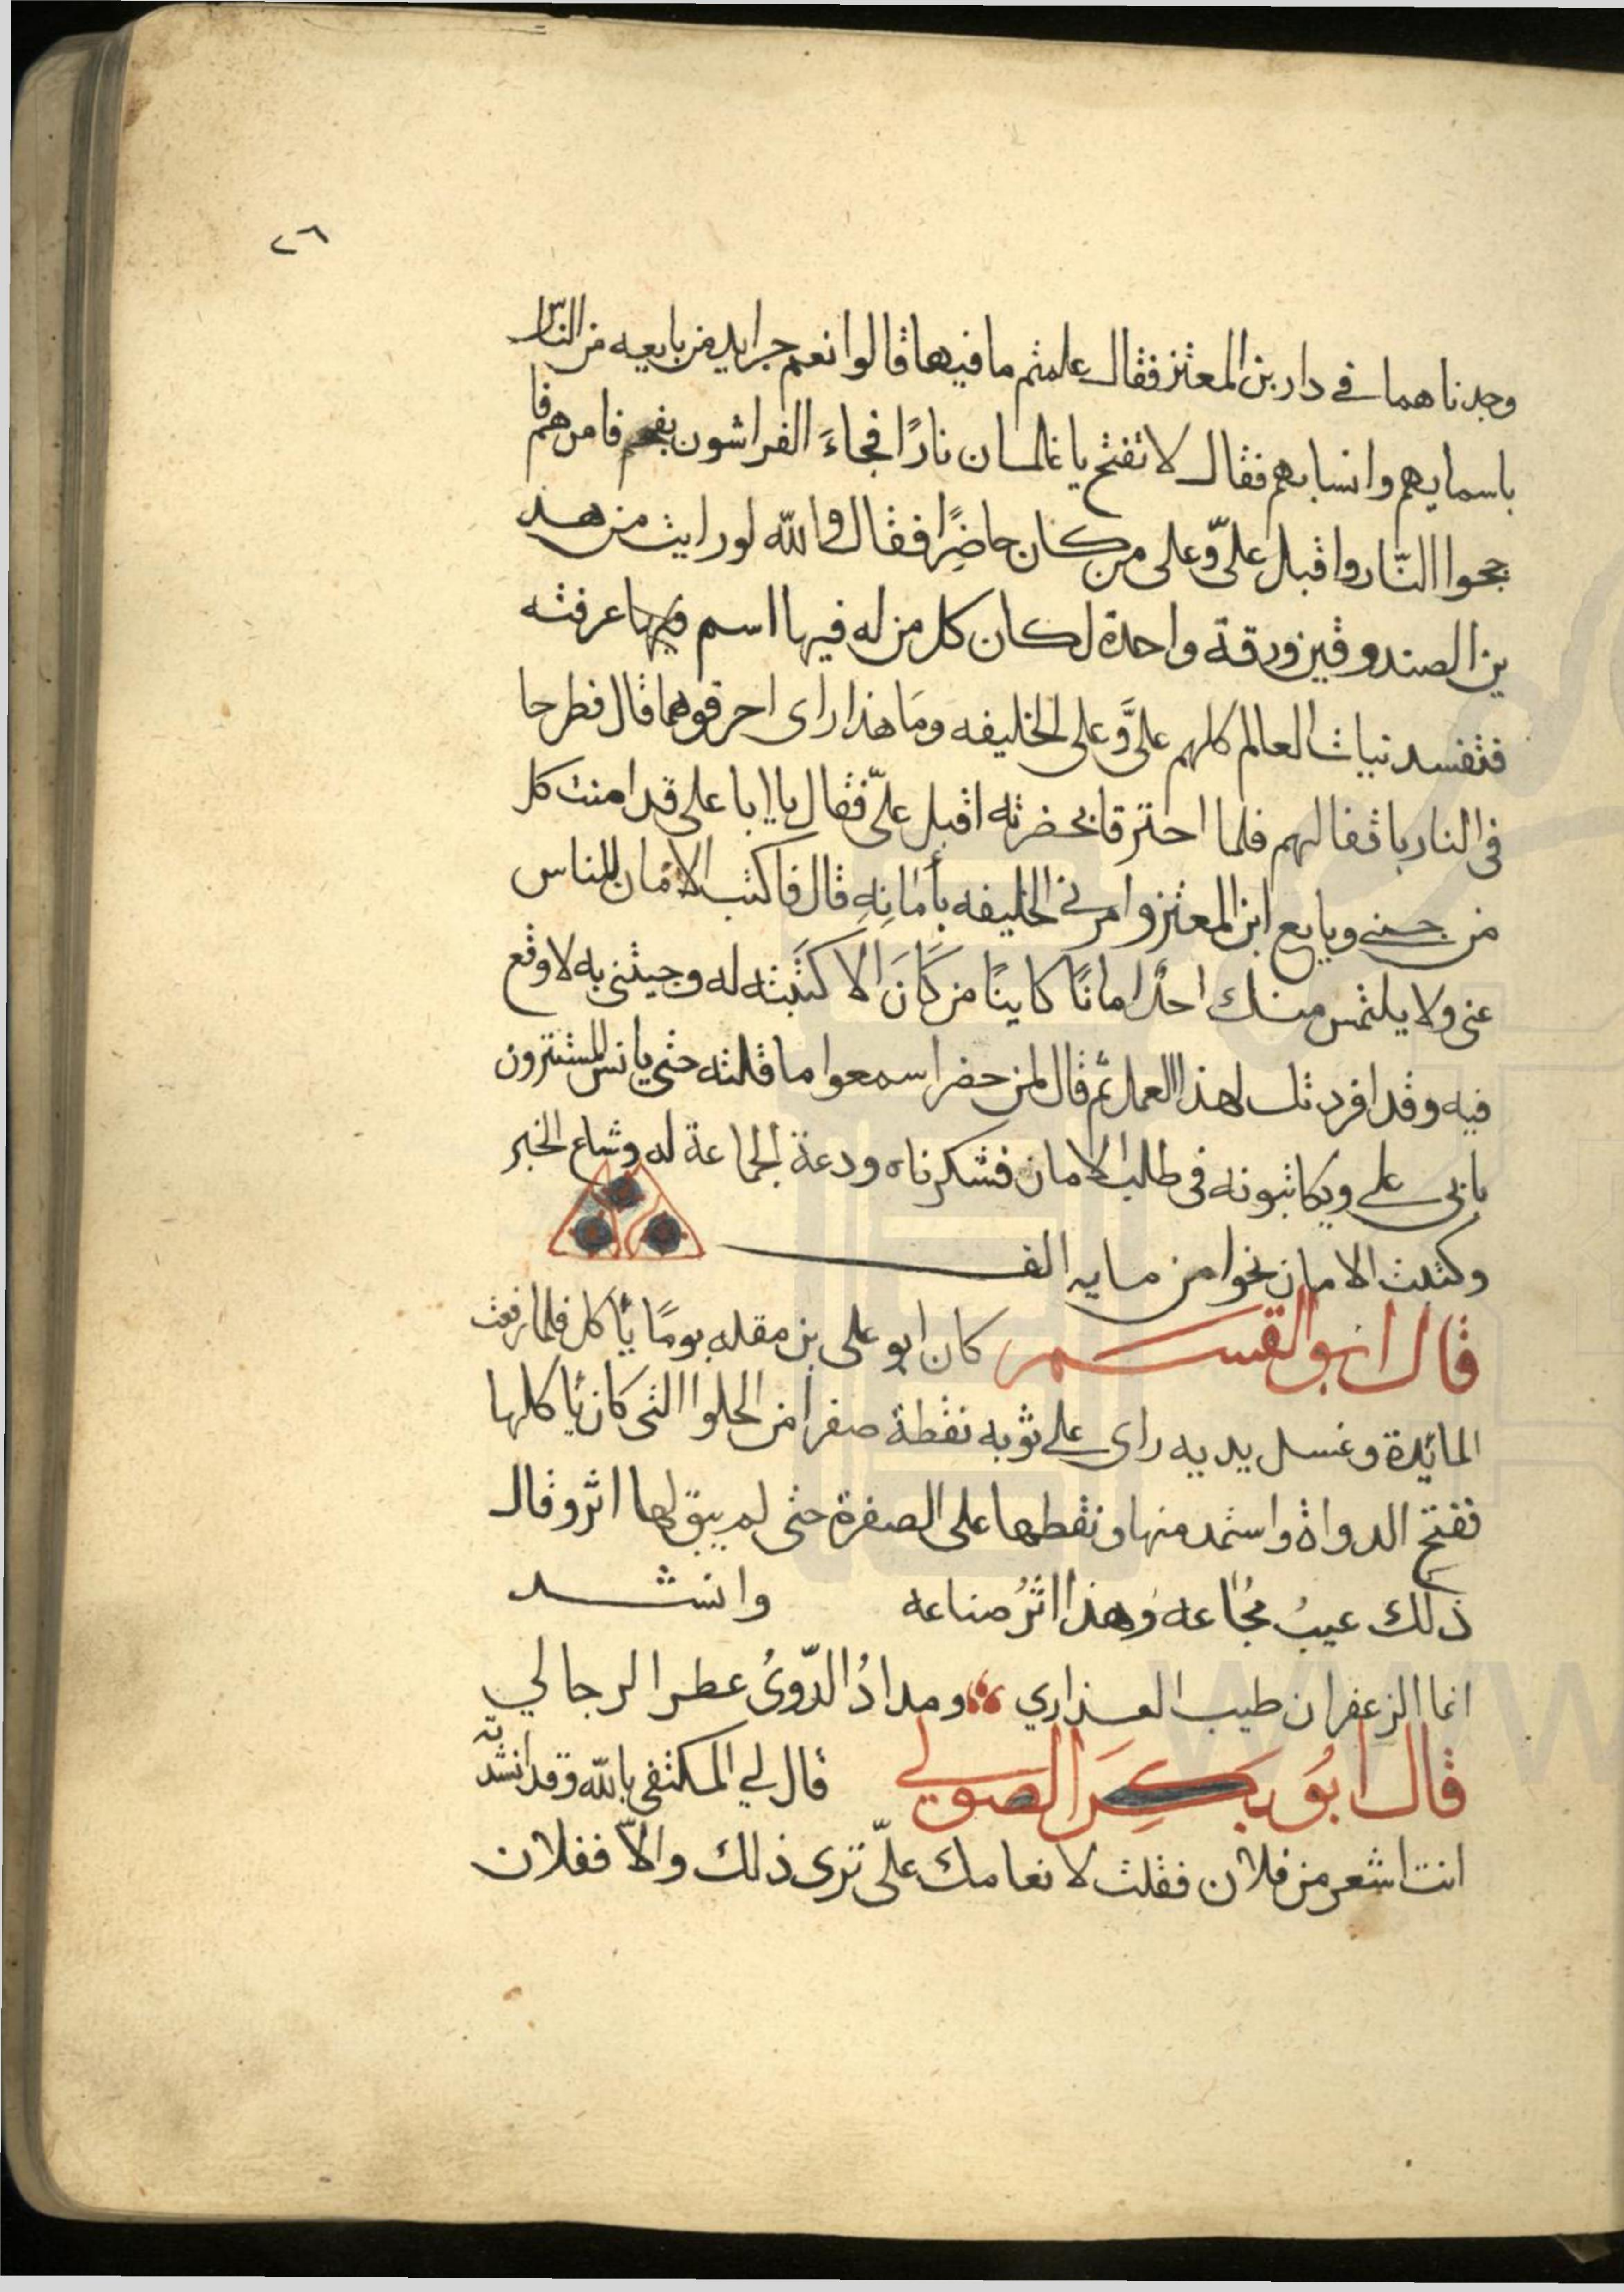 ٢٦
وجدناهما في دار بن المعتز فقال علمتم ما فيهما قالوا نعم جرايد من بايعه من الناس
باسمايهم وانسابهم فقال لا تفتح يا غلمان نارًا فجاءَ الفراشون بفحم فامرهم فا
ججوا النّار واقبل عليّ وعلى من كان حاضِرًا فقال والله لو رايت من هذ
ين الصندوقين ورقة واحدة لكان كل من له فيها اسم عرفته
فتفسد نيات العالم كلهم عليَّ وعلى الخليفه ومَا هذا راى احرقوهما قال فطرحا
في النار باقفالهم فلما احترقا بحضرته اقبل عليّ فقال يا ابا على قد امنت كل
من جنى وبايع ابن المعتز وامرني الخليفه بأمانِهِ قال فاكتب الامان للناس
عنى ولا يلتمس منك احدٌ امانًا كاينًا من كَانَ الا كتَبته له وجيتنى به لاوقع
فيه وقد افردتك لهذا العمل ثم قال لمن حضر اسمعوا ما قلته حتى يانس المستترون
بابى على ويكاتبونه في طلب الامان فشكرناه ودعة الجماعة له وشاع الخبر
وكتبت الامان نحوا من مايه الف
قال ابو القسم كان ابو على بن مقله يومًا يأكل فلما رفعت
المائيدة وغسل يديه راى على ثوبه نقطة صفرا من الحلوا التى كان يأكلها
ففتح الدواة واستمد منها ونقطها على الصفرة حتى لم يبق لها اثر وقال
ذلك عيبُ مجُاعه وهذا اثرُ صناعه وانشد
انما الزعفران طيب العذاري ومدادُ الدّوىُ عطر الرجالي
قال ابُو بكرَ الصولي قال لي المكتفى بالله وقد انشدته
انت اشعر من فلان فقلت لانعامك عليّ ترى ذلك والاّ ففلان